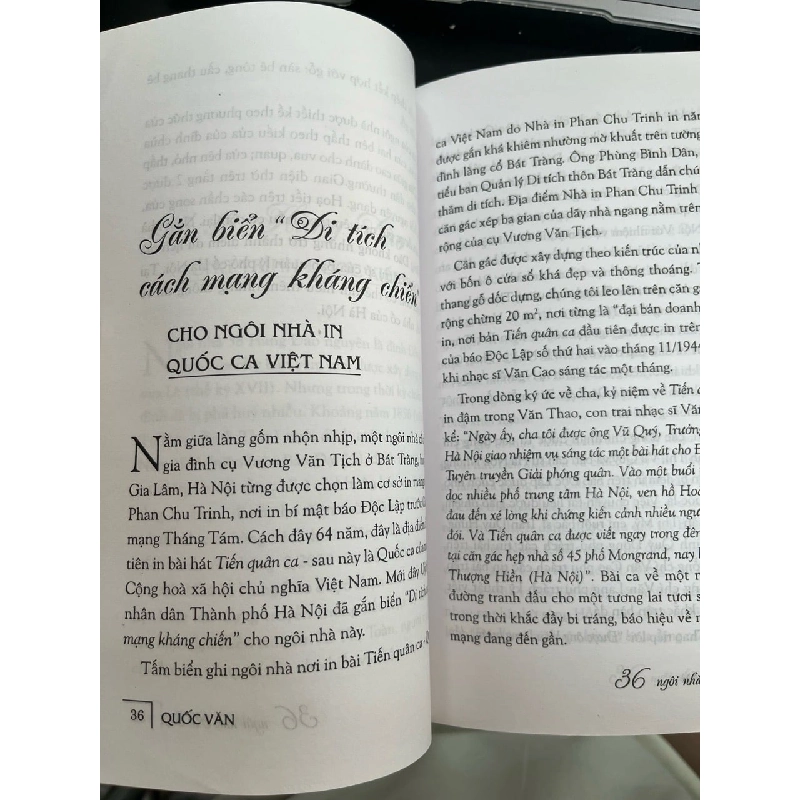 Gắn biển “Di tích
cách mạng kháng chiến”
CHO NGÔI NHÀ IN
QUỐC CA VIỆT NAM
Nằm giữa làng gốm nhộn nhịp, một ngôi nhà
gia đình cụ Vương Văn Tịch ở Bát Tràng,
Gia Lâm, Hà Nội từng được chọn làm cơ sở in mang
Phan Chu Trinh, nơi in bí mật báo Độc Lập trước
mạng Tháng Tám. Cách đây 64 năm, đây là địa điểm
tiên in bài hát Tiến quân ca - sau này là Quốc ca
Cộng hoà xã hội chủ nghĩa Việt Nam. Mới đây,
nhân dân Thành phố Hà Nội đã gắn biển “Di tích
mạng kháng chiến” cho ngôi nhà này.
Tấm biển ghi ngôi nhà nơi in bài Tiến quân ca -
36 QUỐC VĂN
ca Việt Nam do Nhà in Phan Chu Trinh in năm
được gắn khá khiêm nhường mờ khuất trên tường
đình làng cổ Bát Tràng. Ông Phùng Bình Dân,
tiểu ban Quản lý Di tích thôn Bát Tràng dẫn chú
thăm di tích. Địa điểm Nhà in Phan Chu Trinh
căn gác xép ba gian của dãy nhà ngang nằm trên
rộng của cụ Vương Văn Tịch.
Căn gác được xây dựng theo kiến trúc của nh
với bốn ô cửa sổ khá đẹp và thông thoáng. T
thang gỗ dốc dựng, chúng tôi leo lên trên căn g
rộng chừng 20 m², nơi từng là “đại bản doanh
in, nơi bản Tiến quân ca đầu tiên được in trên
của báo Độc Lập số thứ hai vào tháng 11/194
khi nhạc sĩ Văn Cao sáng tác một tháng.
Trong dòng ký ức về cha, kỷ niệm về Tiến q
in đậm trong Văn Thao, con trai nhạc sĩ Vă
kể: “Ngày ấy, cha tôi được ông Vũ Quý, Trưởng
Hà Nội giao nhiệm vụ sáng tác một bài hát cho Đ
Tuyên truyền Giải phóng quân. Vào một buổi
dọc nhiều phố trung tâm Hà Nội, ven hồ Hoà
đau đến xé lòng khi chứng kiến cảnh nhiều ngư
đói. Và Tiến quân ca được viết ngay trong đê
tại căn gác hẹp nhà số 45 phố Mongrand, nay l
Thượng Hiền (Hà Nội)”. Bài ca về một n
đường tranh đấu cho một tương lai tươi s
trong thời khắc đầy bi tráng, báo hiệu về n
mạng đang đến gần.
36 ngôi nhà